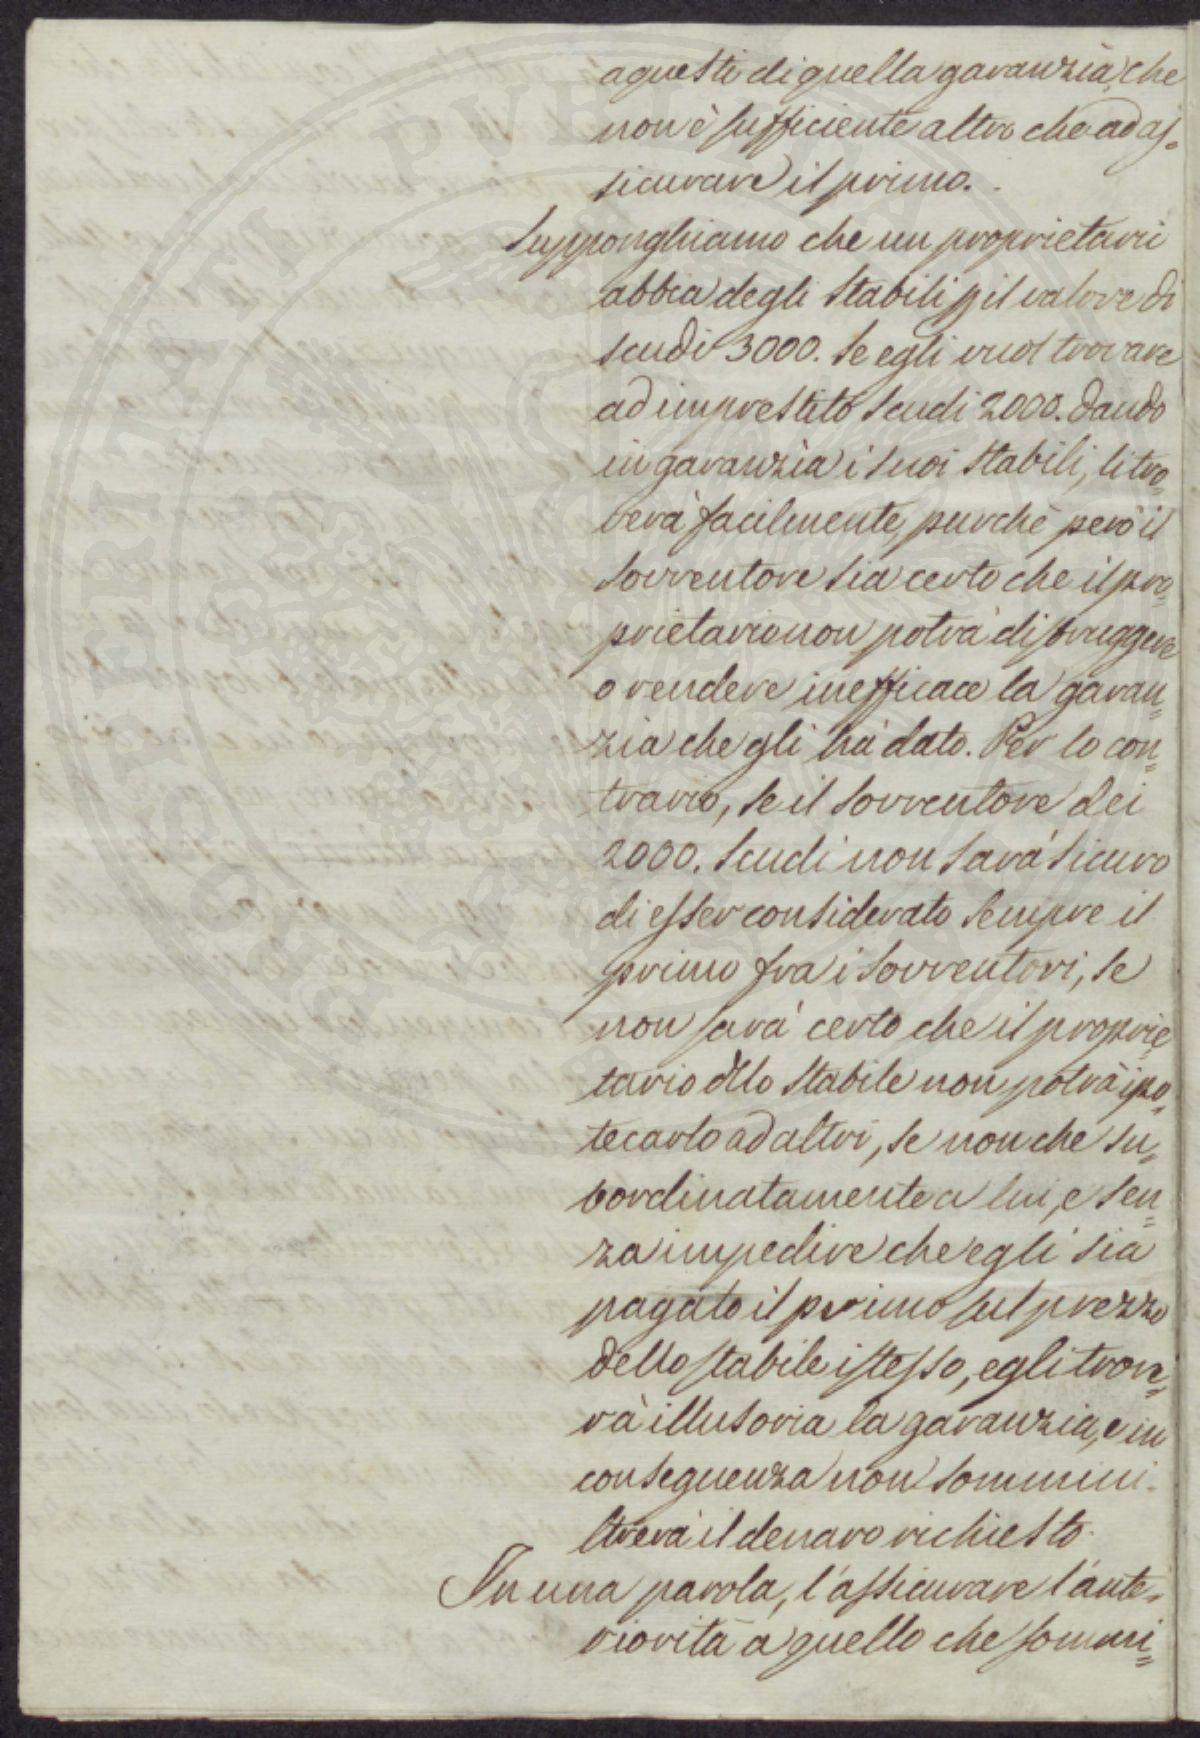 a questi di quella garanzia, che
non è sufficiente altro che ad as-
sicurare il primo.
Supponghiamo che un proprietario
abbia degli stabili p il valore di
scudi 3000. Se egli vuol trovare
ad imprestito scudi 2000. dando
in garanzia i suoi stabili, li tro=
verà facilmente, purchè però il
sovventore sia certo che il pro=
prietario non potrà distruggere
o rendere inefficace la garan=
zia che gli hà dato. Per lo con=
trario, se il sovventore dei
2000. scudi non sarà sicuro
di esser considerato sempre il
primo fra i sovventori, se
non sarà certo che il proprie=
tario dllo stabile non potrà ipo=
tecarlo ad altri, se non che su=
bordinatamente a lui, e sen=
za impedire che egli sia
pagato il primo sul prezzo
dello stabile istesso, egli trove=
rà illusoria la garanzia, e in
conseguenza non sommini-
strerà il denaro richiesto.
In una parola, l'assicurare l'ante=
riorità a quello che sommi=
PROSPERITATI PUBLICAE